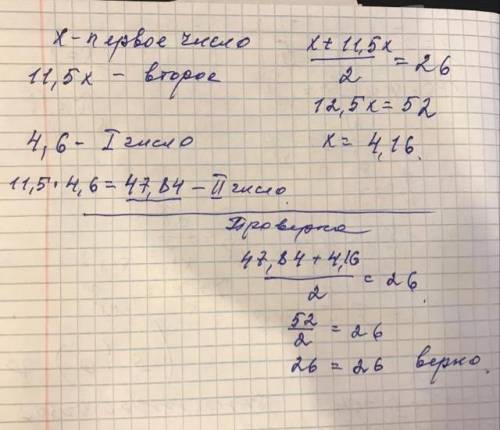 x - первое число
11,5x - второе
x + 11,5x / 2 = 26
12,5x = 52
x = 4,16.
4,6 - I число
11,5 · 4,6 = 47,84 - II число
Проверка
47,84 + 4,16 / 2 = 26.
52 / 2 = 26
26 = 26 верно.